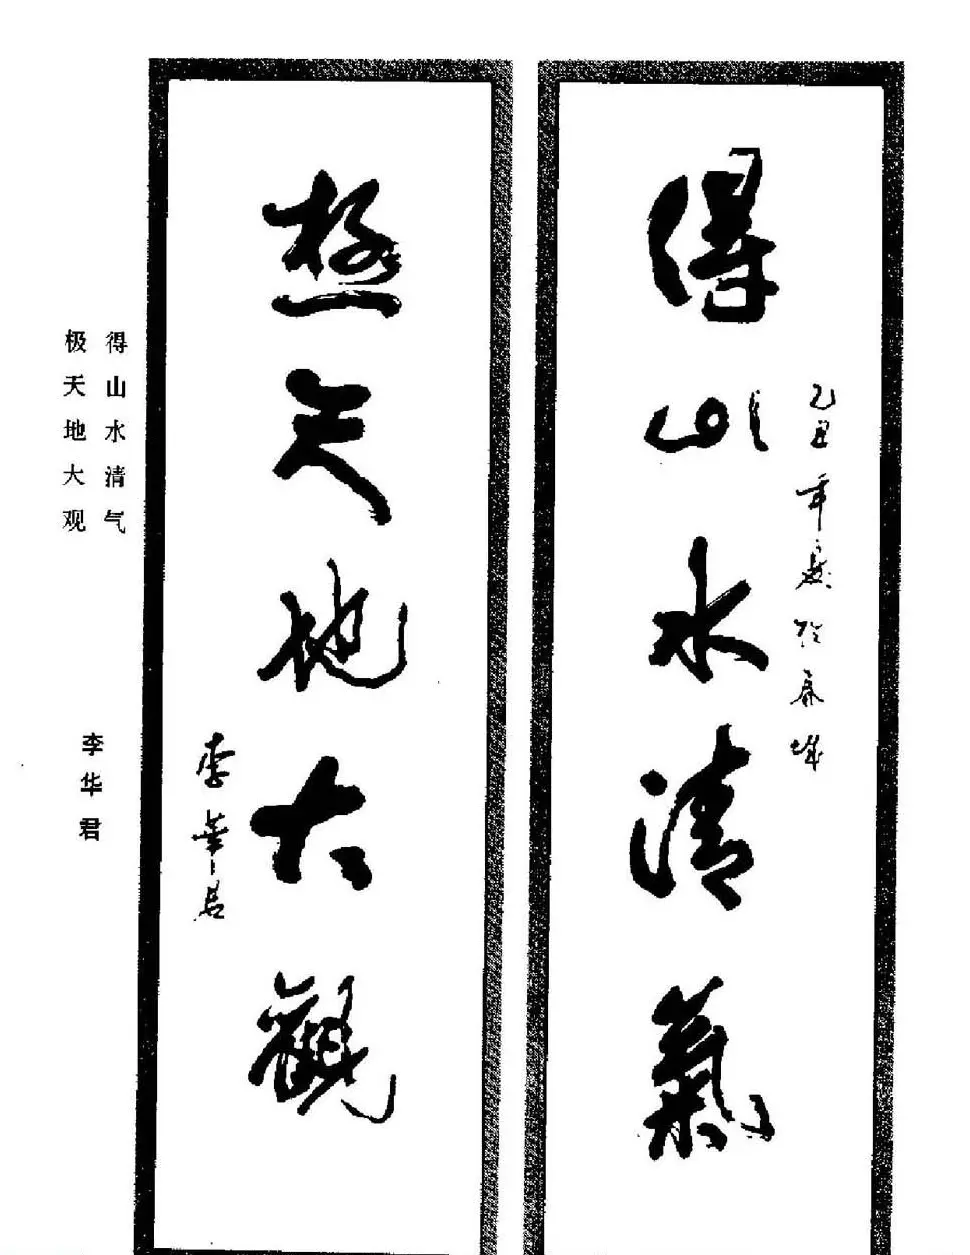 得山水清氣
乙丑年於春城
極天地大觀
李華君
得山水清气
极天地大观
李华君